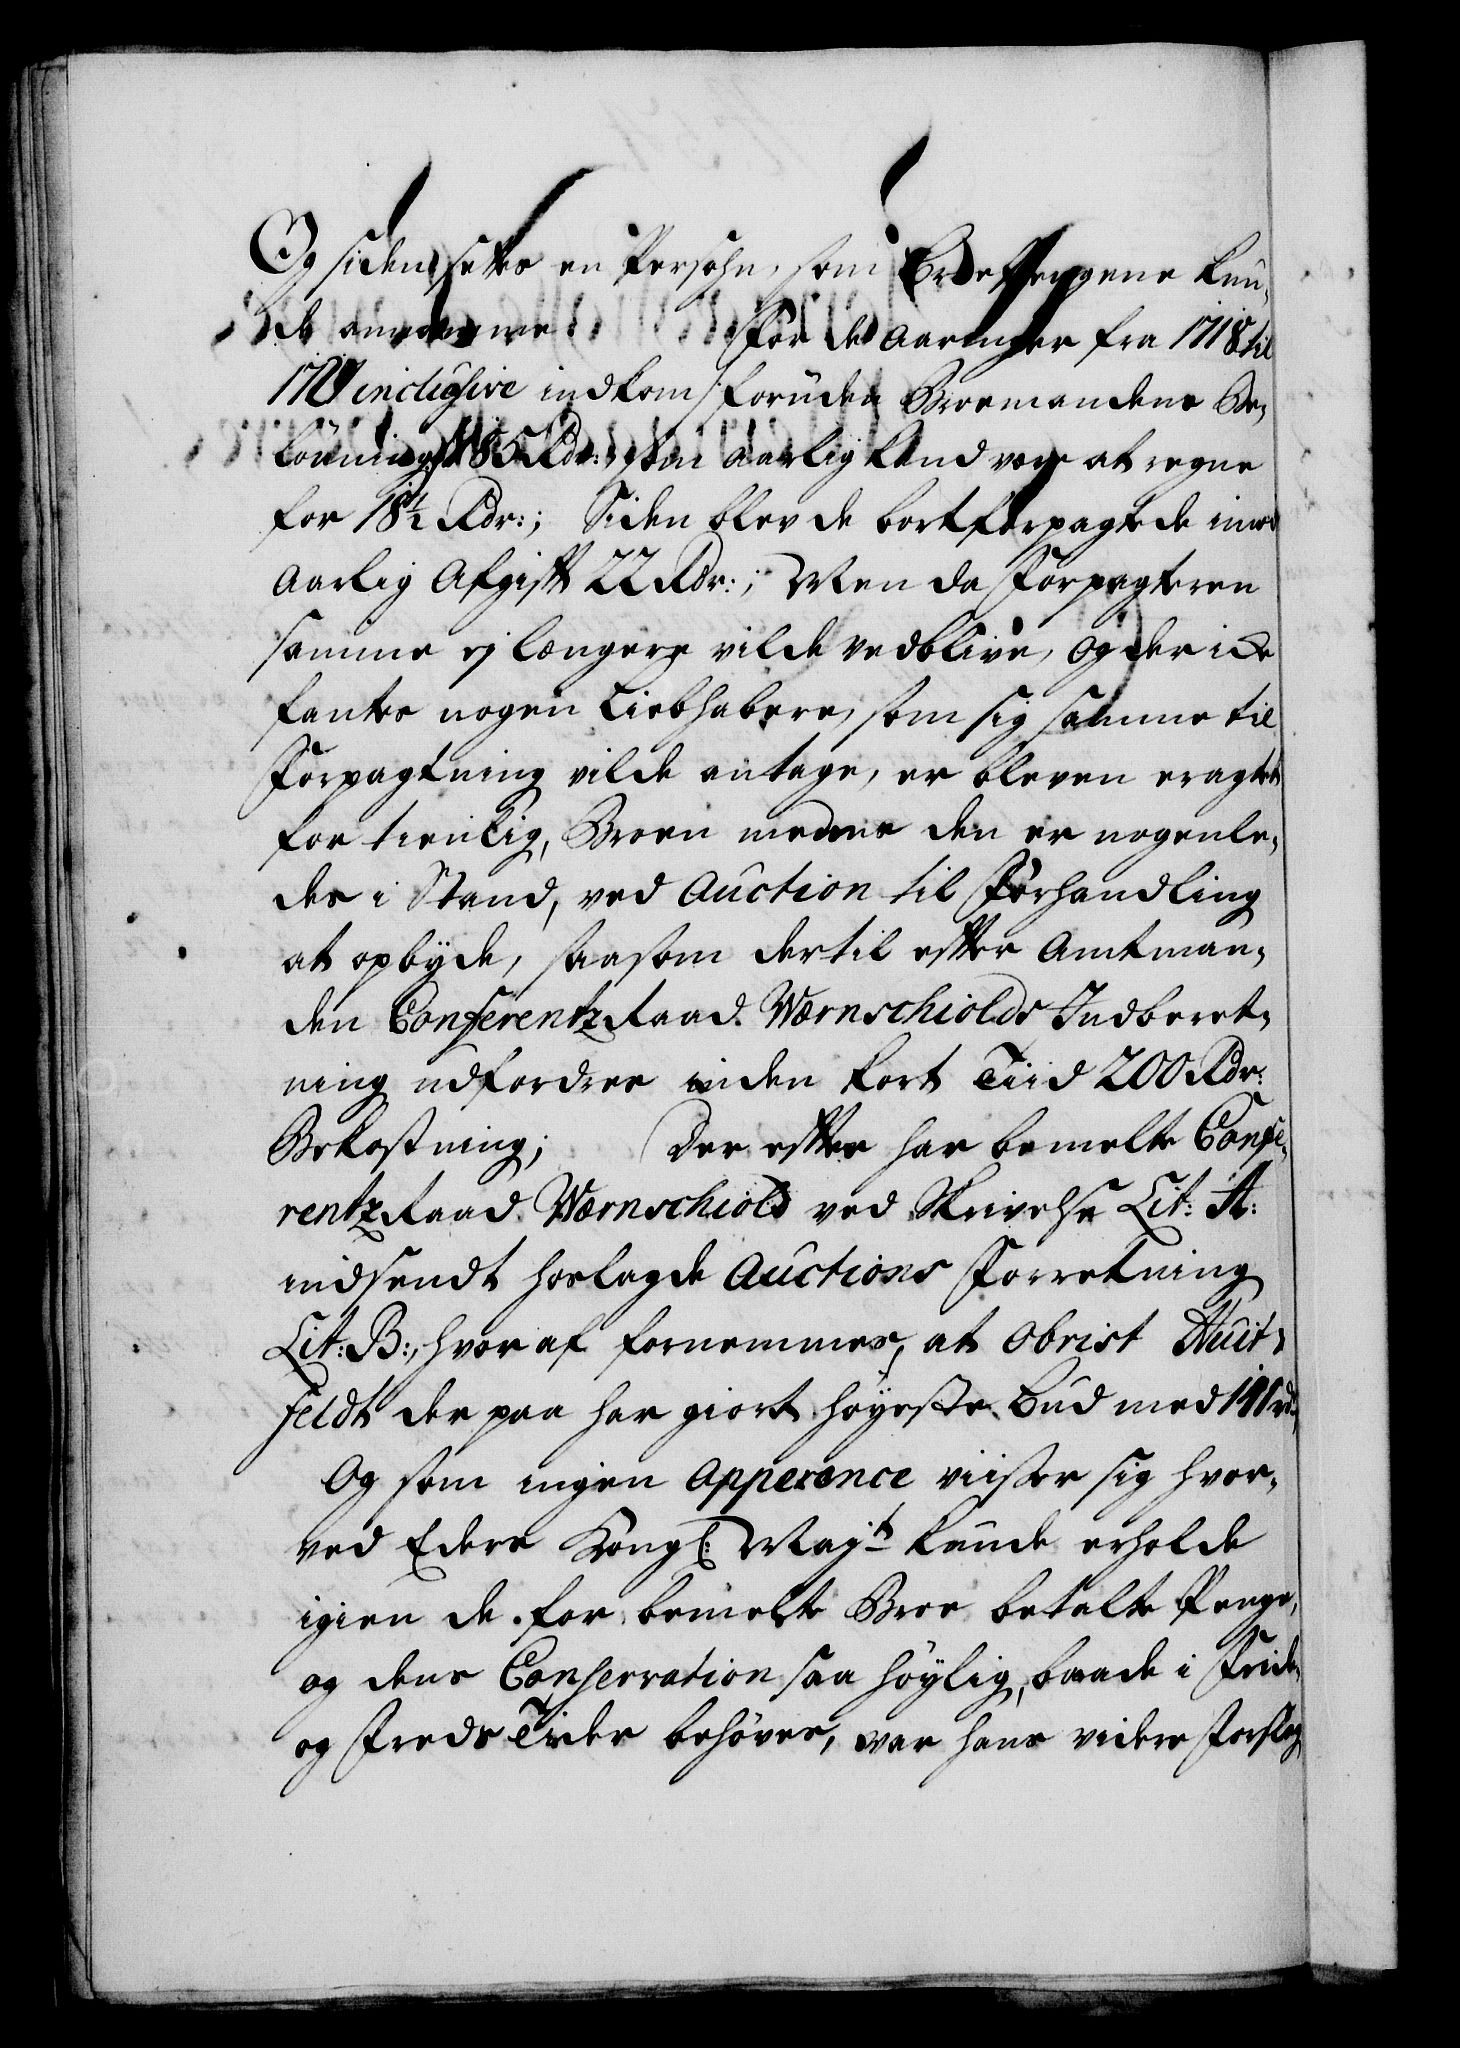 Og siden settes en Persohn, som Broepengene kun¬
de annamme. For de Aaringer fra 1718 til
inclusive indkom, foruden Broemandens Be¬
lønning, 185 Rdr:, som aarlig kand være at regne
for 18½ Rdr:; Siden blev de bortforpagtede imod
Aarlig Afgift 22 Rdr:; Men da Forpagteren
samme ej længere vilde vedblive, og der icke
fantes nogen Liebhabere, som sig samme til
Forpagtning vilde antage, er bleven eragtet
for tienlig, Broen medens den er nogenle¬
des i Stand, ved Auction til Forhandling
at opbyde, saasom dertil efter Amtman¬
den Conferentz Raad Wærnschiolds Indberet¬
ning udfordres inden kort Tiid 200 Rdr:
Bekostning; Der efter har bemelte Confe¬
rentz Raad Wærnschiold ved Skrivelse Lit: A:
indsendt hoslagde Auctions Forretning
Lit: B:, hvor af fornemmes, at Obrist Huit¬
feldt der paa har giort høyeste Bud med rd:,
Og som ingen Apperence viiser sig hvor¬
ved Eders Kongl: Mayts kunde erholde
igien de for bemelte Broe betalte Penge,
og dens Conservation saa høylig, baade i Feide
og Freds Tider behøves, var hans videre Forslag